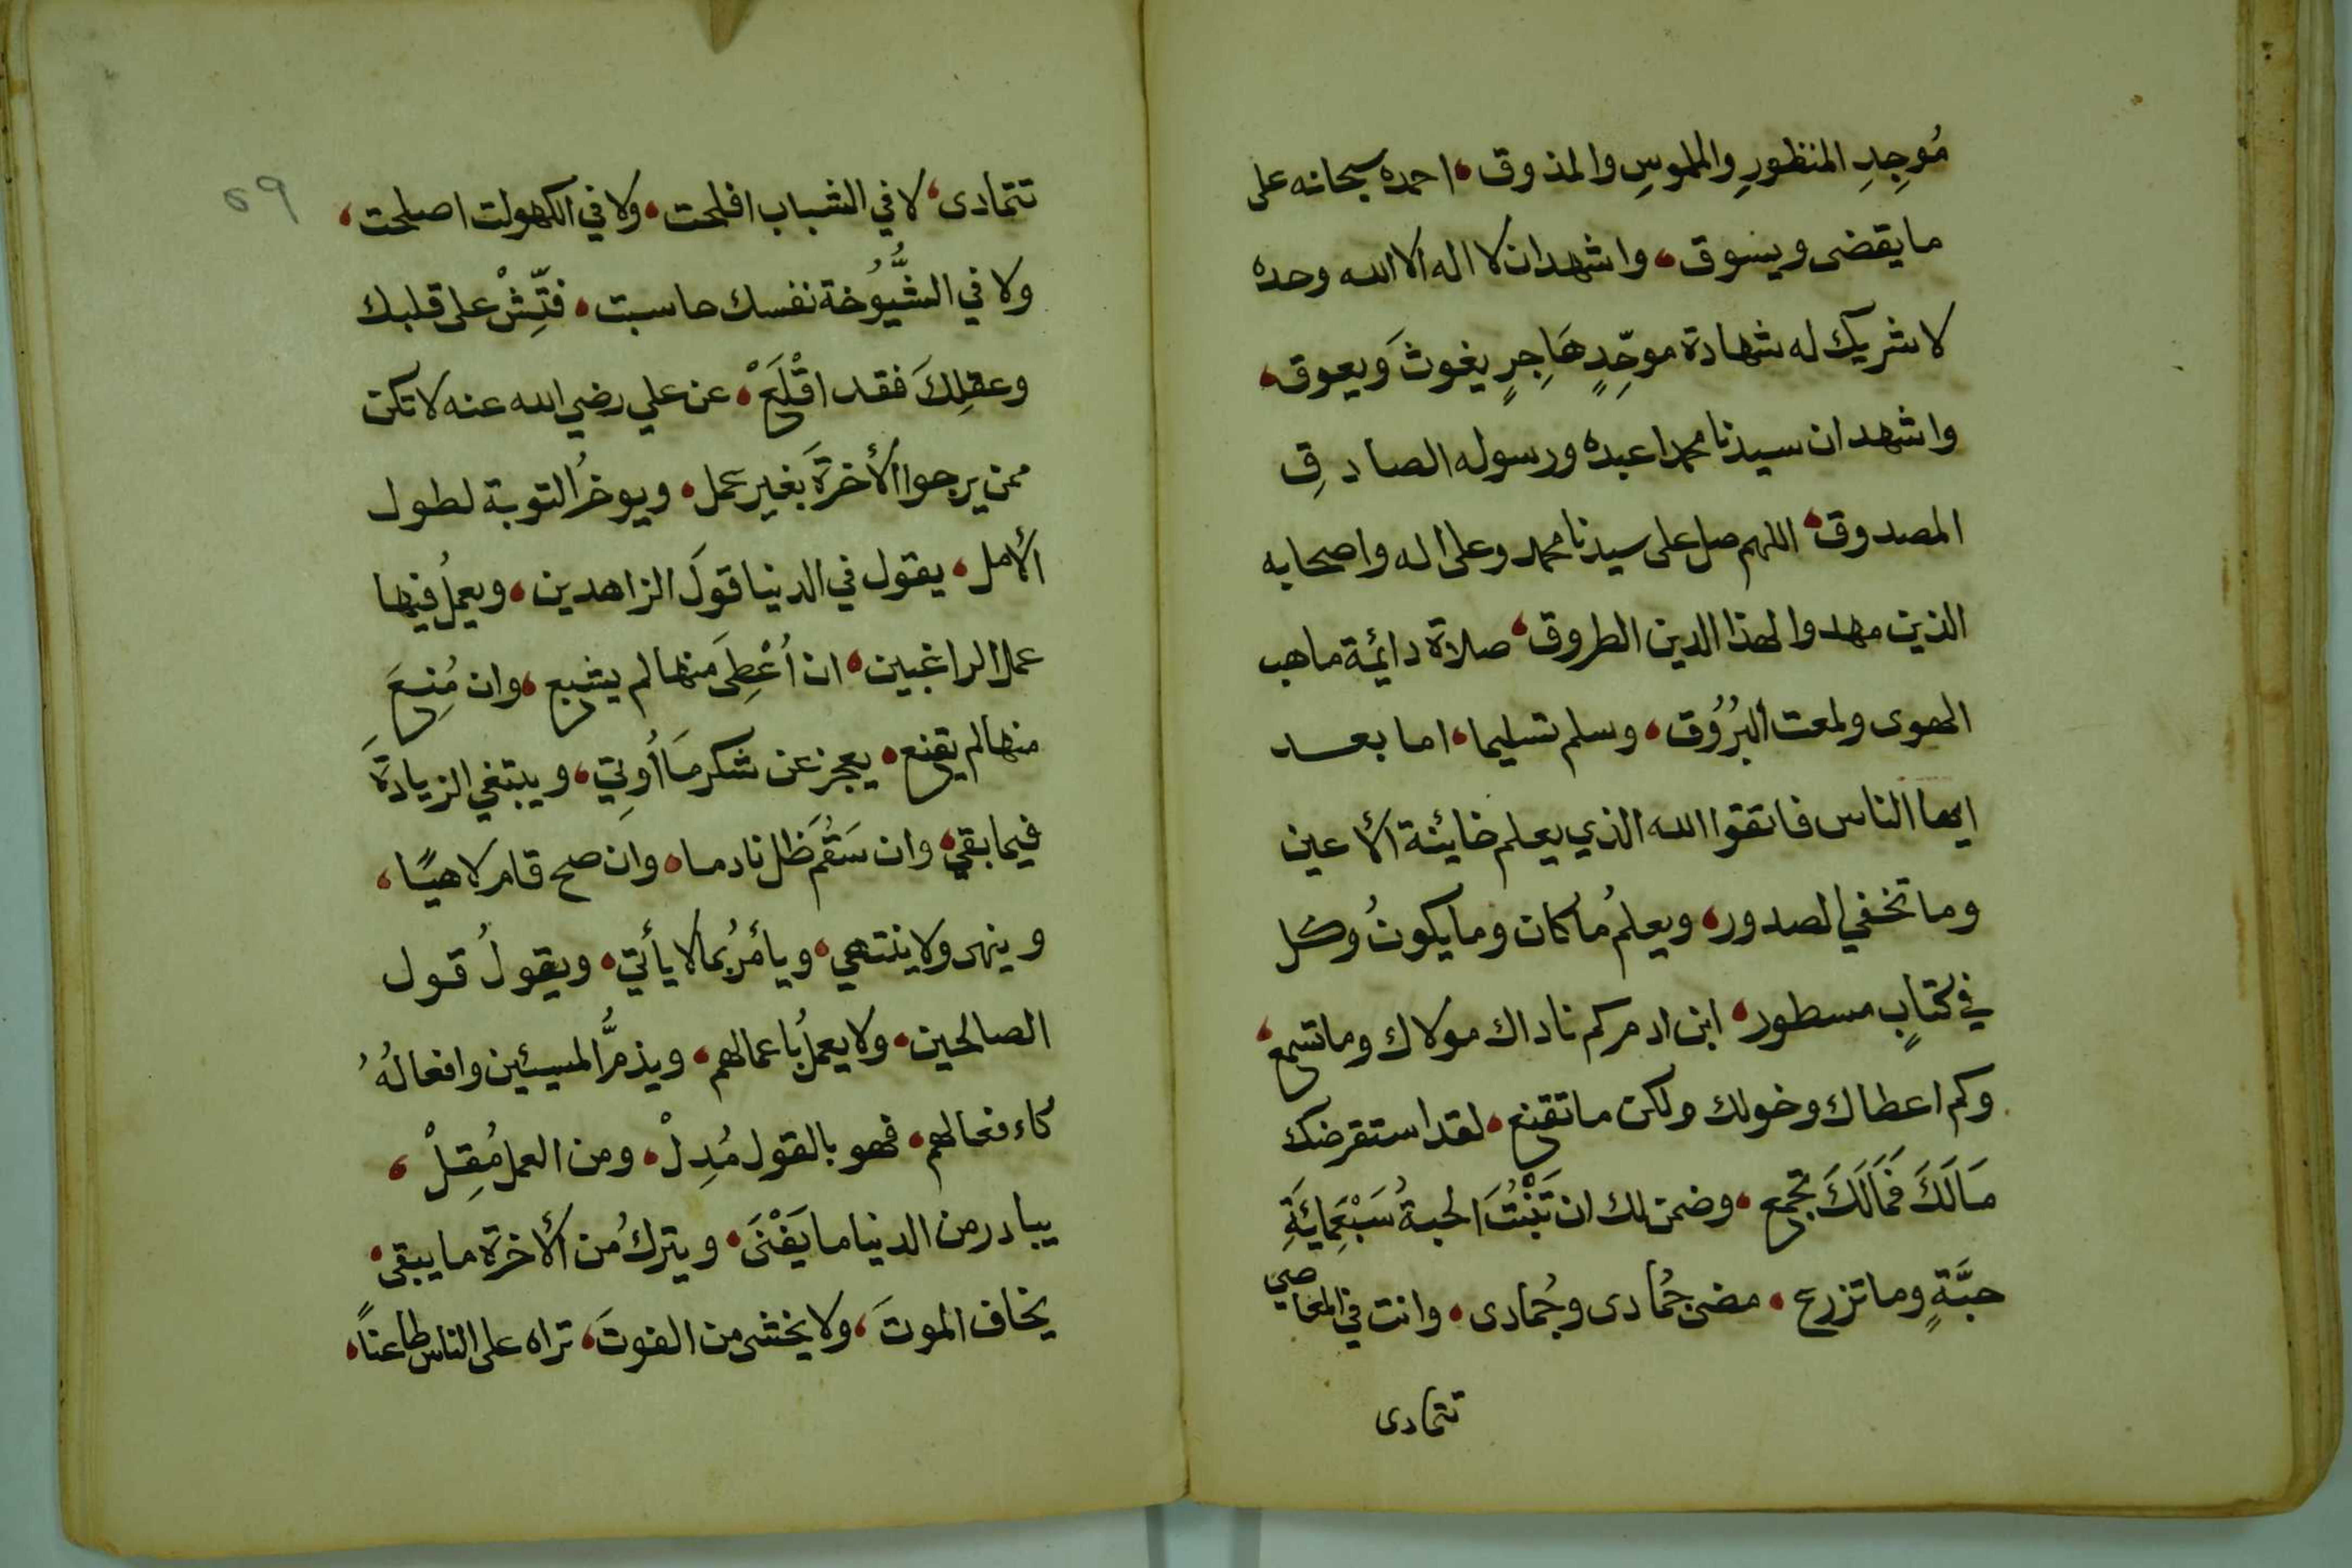 مُوجِدِ المنظورِ والملموسِ والمذوق، احمده سبحانه على
ما يقضى ويسوق، واشهد ان لا اله الا الله وحده
لا شريك له شهادة موحِّدٍ هَاجِرٍ يغوثَ ويعوق،
واشهد ان سيدنا محمدا عبده ورسوله الصادقِ
المصدوق، اللهم صل على سيدنا محمد وعلى اله واصحابه
الذين مهدوا لهذا الدين الطروق، صلاة دائمة ما هب
الهوى ولمعت البُرُوُق، وسلم تسليما، اما بعد
ايها الناس فاتقوا الله الذي يعلم خائنة الأعين
وما تخفي الصدور، ويعلمُ ما كان وما يكونُ وكل
في كتابٍ مسطور، ابن ادم كم ناداك مولاك وما تسمع،
وكم اعطاك وخولك ولكن ما تقنع، لقد استقرضك
مَالَكَ فَمَالَكَ تجمع، وضمن لك ان تَنْبُتَ الحبةُ سَبْعَمِائَةِ
حبَّةٍ وما تزرع، مضى جُمادى وجُمادى، وانت في المعاصي
تتمادى
تتمادى، لا في الشباب افلحت، ولا في الكهولت اصلحت،
ولا في الشُّيُوُخة نفسك حاسبت، فتِّشْ على قلبك
وعقلِكَ فقد اقْلَعْ، عن علي رضي الله عنه لا تكن
ممن يرجوا الأخرةَ بغير عمل، ويوخرُ التوبة لطول
الأمل، يقول في الدنيا قولَ الزاهدين، ويعملُ فيها
عمل الراغبين، ان اُعْطِىَ منها لم يشبع، وان مُنِعَ
منها لم يقنع، يعجز عن شكر مَا أُوتِيَ، ويبتغي الزيادةَ
فيما بقي، وان سَقُمَ ظل نادما، وان صح قام لاهيًا،
وينهى ولا ينتهي، ويأمرُ بما لا يأتي، ويقولُ قول
الصالحين، ولا يعملُ باعمالهم، ويذمُّ المسيئين وافعالُهُ
كاءفعالهم، فهو بالقول مُدِلْ، ومن العمل مُقِلْ،
يبادر من الدنيا ما يَفْنَى، ويتركُ من الأخرة ما يبقى،
يخاف الموتَ، ولا يخشى من الفوتَ، تراه على الناس طاعناً،
٥٩